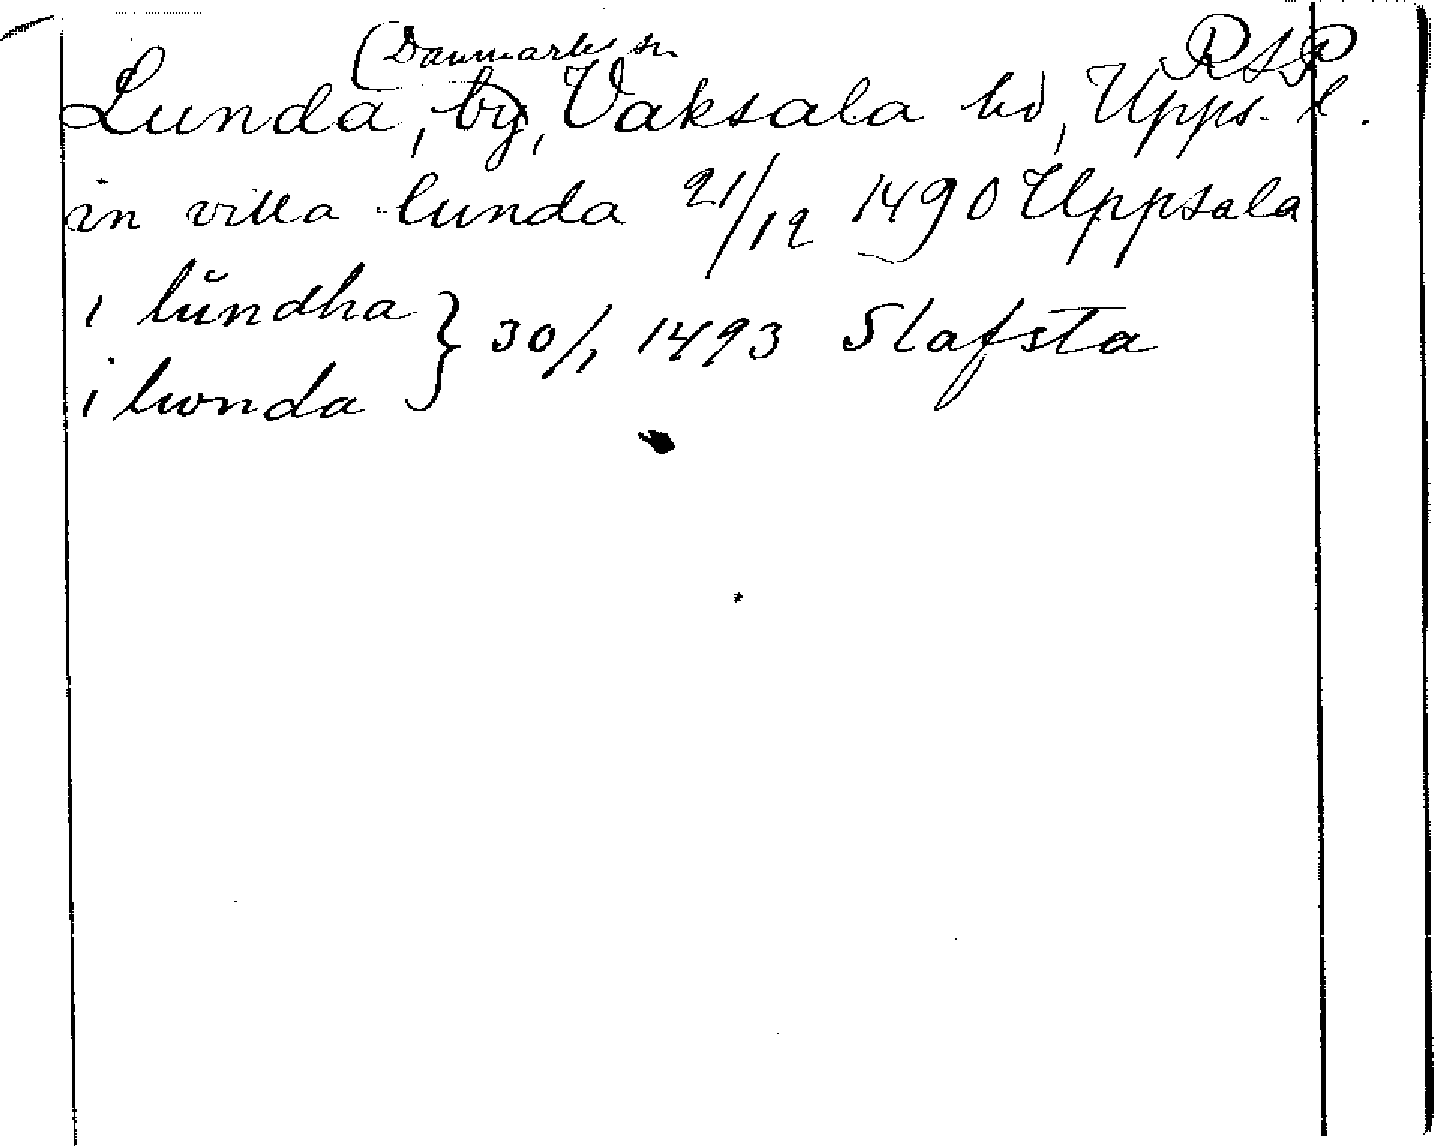 (Danmarks sn
RAP
Lunda, by, Vaksala hd, Upps. l.
in villa lunda 21/12 1490 Uppsala
i lŭndha } 30/1 1493 Slafsta
i lwnda